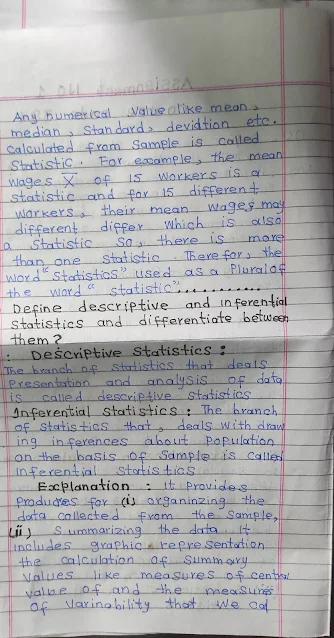 Any numerical Value like mean,
median, Standard, devidtion etc.
Calculated from Sample is called
Statistic. For example, the mean
wages X̄ of 15 workers is a
statistic and for 15 different
workers, their mean wages may
different differ which is also
a Statistic So, there is more
than one Statistic There for, the
word "Statistics" used as a Plural of
the word "statistic"............
Define descriptive and inferential
Statistics and differentiate between
them?
: Descriptive Statistics :
The branch of statistics that deals
Presentation and analysis of data
is called descriptive statistics
Inferential Statistics : The branch
of statistics that, deals with draw
ing inferences about Population
on the basis of Sample is called
Inferential Statistics
Explanation : It Provides
Produres for (i) organinzing the
data collected from the Sample,
(ii) Summarizing the data It
includes graphic representation
the Calculation of Summary
Values like measures of central
value of and the measures
of Varinability that we cal